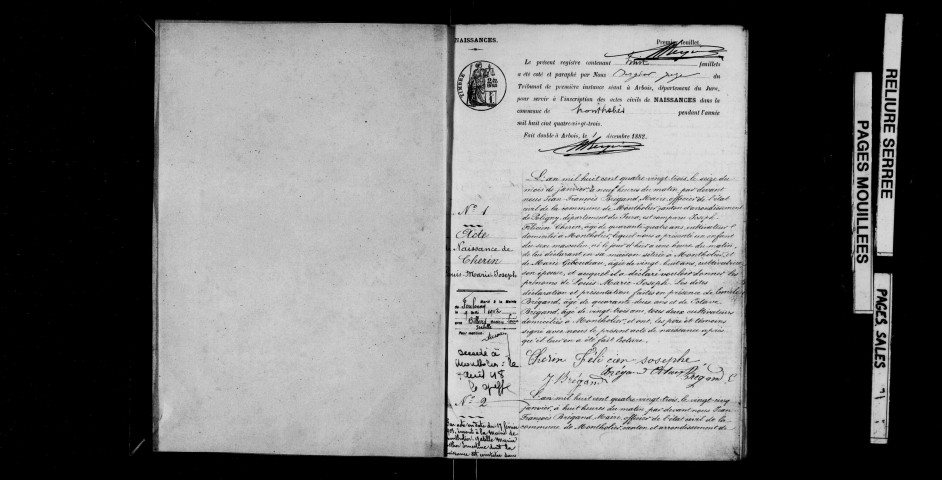 NAISSANCES.
Premier feuillet.
Le présent registre contenant feuillets
a été coté et paraphé par Nous juge du
Tribunal de première instance séant à Arbois, département du Jura,
pour servir à l'inscription des actes civils de NAISSANCES dans la
commune de Montholier pendant l'année
mil huit cent quatre-vingt-trois.
Fait double à Arbois, le décembre 1882.
TIMBRE
N° 1
Acte
Naissance de
Cherin
Louis-Marie-Joseph
L'an mil huit cent quatre vingt trois, le seize du
mois de janvier à neuf heures du matin, par devant
nous Jean François Brégand, Maire, officier de l'état
civil de la commune de Montholier, canton et arrondissement
de Poligny, département du Jura, est comparu Joseph
Félicien Cherin, âgé de quarante quatre ans, cultivateur
domicilié à Montholier, lequel nous a présenté un enfant
du sexe masculin, né le jour d'hier à une heure du matin,
de lui déclarant en sa maison située à Montholier, et
de Marie âgée de vingt huit ans, cultivatrice
son épouse, et auquel il a déclaré vouloir donner les
prénoms de Louis-Marie-Joseph. Les dites
déclaration et présentation faites en présence de
Brégand, âgé de quarante deux ans et de Octave
Brégand, âgé de vingt trois ans, tous deux cultivateurs
domiciliés à Montholier, et ont, les père et témoins
signé avec nous le présent acte de naissance après
qu'il leur en a été fait lecture.
Cherin Félicien Josephe
Brégand Octave Brégand
J Brégand
Marié à la Mairie
de Toulouse
1912
avec
décédé à
Montholier le
avril 48
N° 2
L'an mil huit cent quatre vingt trois, le vingt cinq
janvier, à huit heures du matin, par devant nous Jean
François Brégand, Maire, officier de l'état civil de la
commune de Montholier, canton et arrondissement de
RELIURE SERREE
PAGES MOUILLEES
PAGES SALES